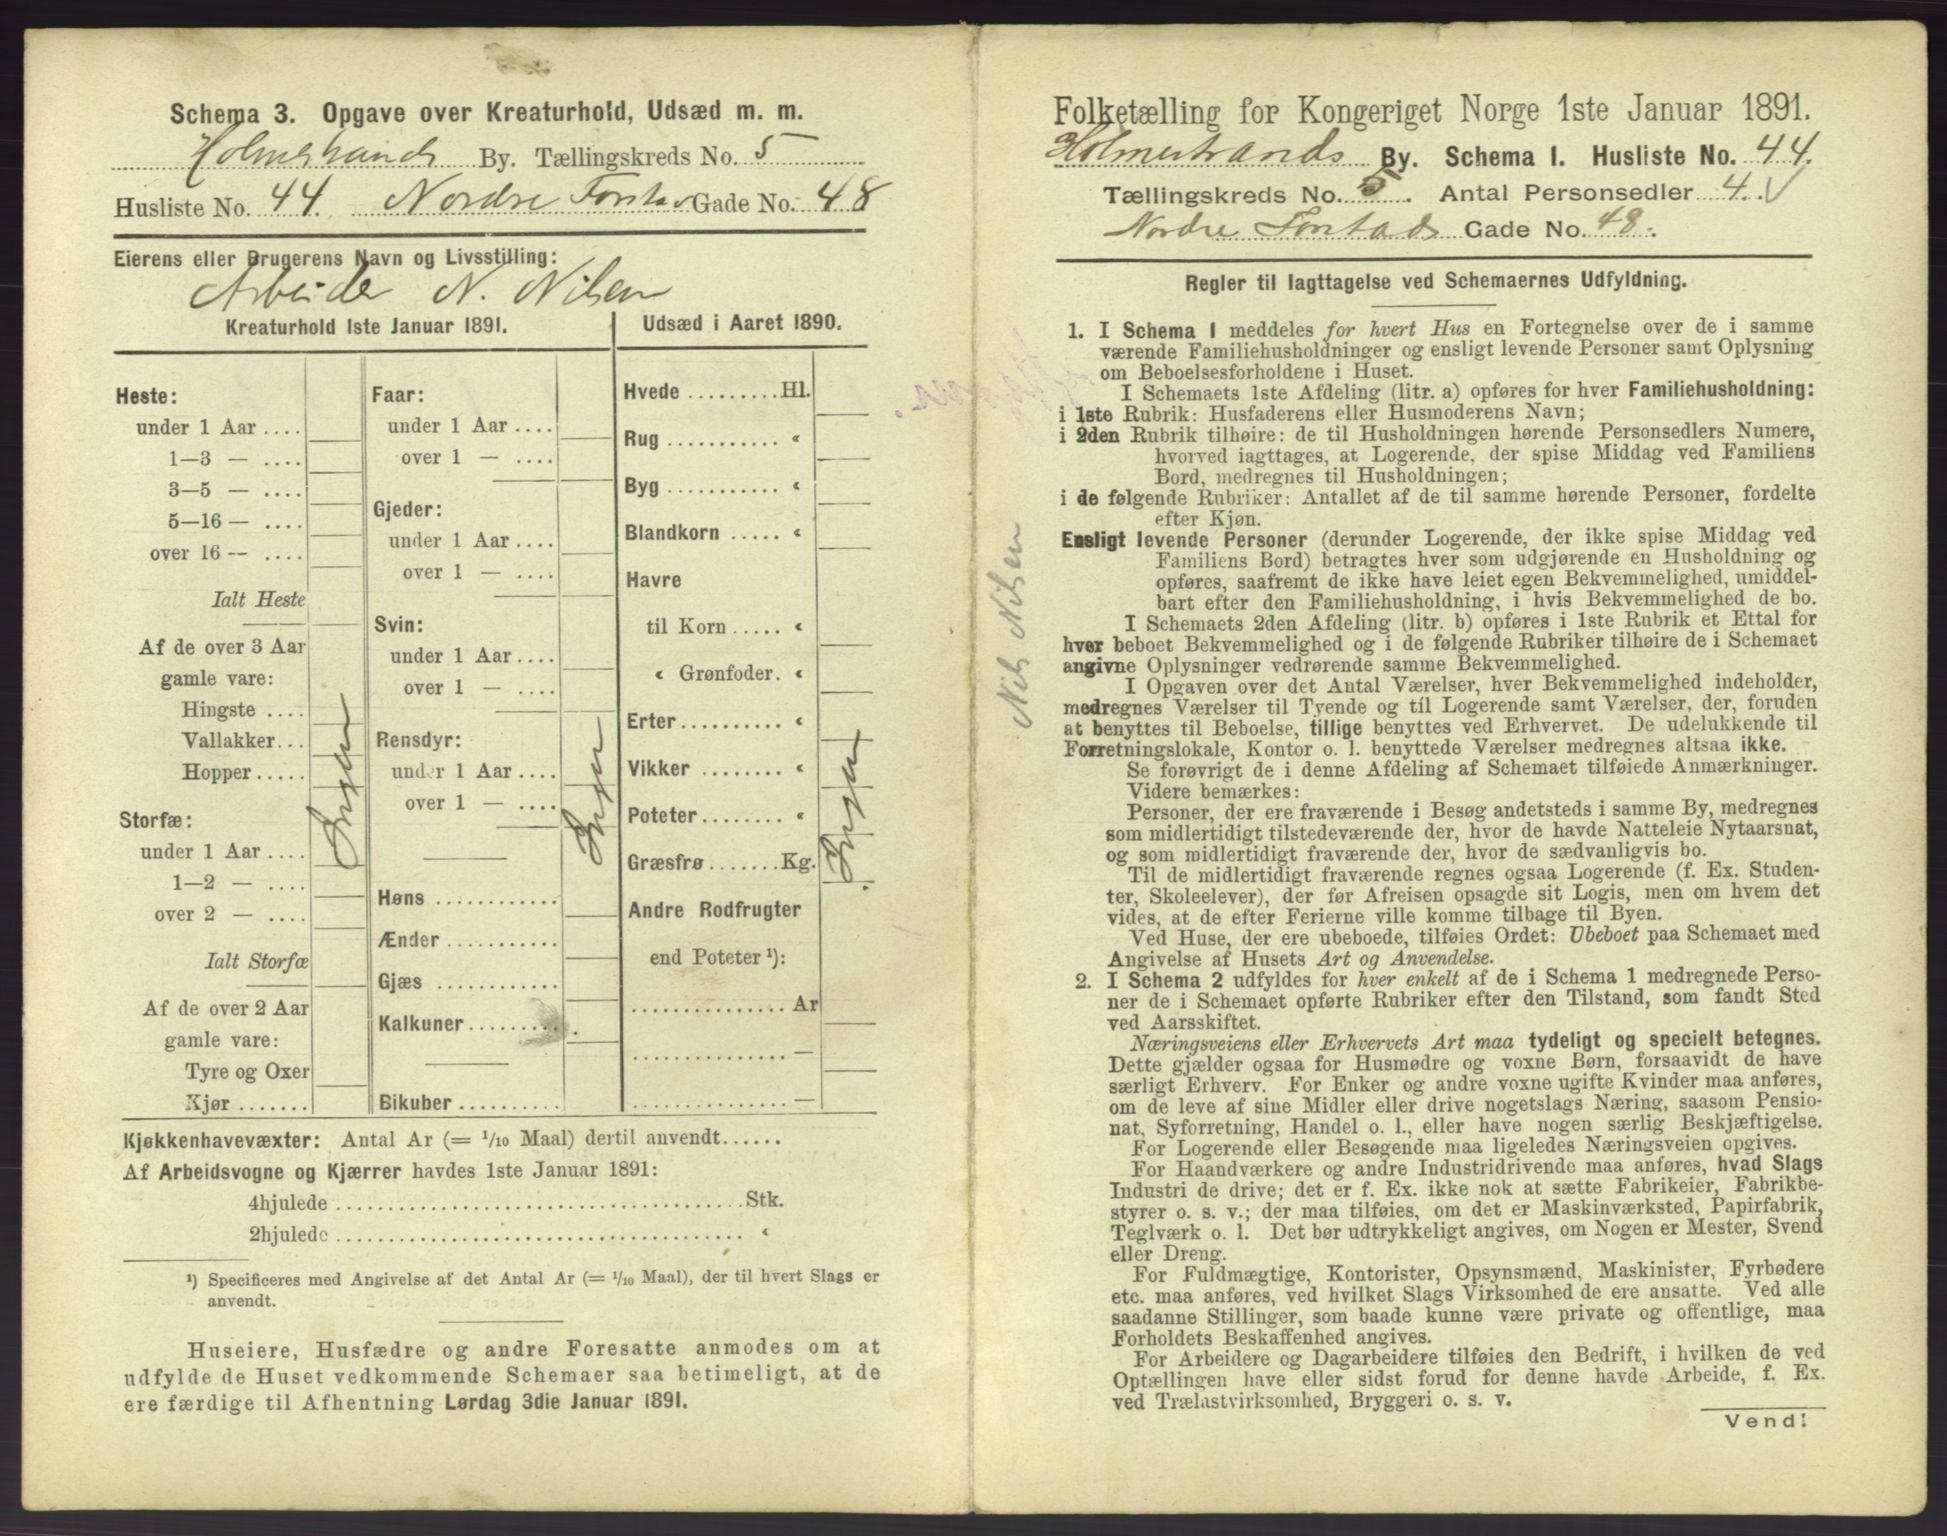 Schema 3. Opgave over Kreaturhold, Udsæd m. m.
Holmestrands By. Tællingskreds No. 5
Husliste No. 44. Nordre Forstads Gade No. 48
Eierens eller Brugerens Navn og Livsstilling:
Arbeider N. Nilsen
Kreaturhold 1ste Januar 1891.
Heste:
under 1 Aar ....
1—3 — ....
3—5 — ....
5—16 — ....
over 16 — ....
Ialt Heste
Af de over 3 Aar
gamle vare:
Hingste ....
Vallakker...
Hopper.....
Storfæ:
under 1 Aar ....
1—2 — ....
over 2 — ....
Ialt Storfæ
Af de over 2 Aar
gamle vare:
Tyre og Oxer
Kjør .......
Ingen
Faar:
under 1 Aar ....
over 1 — ....
Gjeder:
under 1 Aar ....
over 1 — ....
Svin:
under 1 Aar ....
over 1 — ....
Rensdyr:
under 1 Aar ....
over 1 — ....
Høns ............
Ænder ...........
Gjæs ............
Kalkuner.........
Bikuber ..........
Ingen
Udsæd i Aaret 1890.
Hvede .........Hl.
Rug ........... “
Byg ........... “
Blandkorn ..... “
Havre
til Korn ..... “
“ Grønfoder. “
Erter.......... “
Vikker ........ “
Poteter........ “
Græsfrø .......Kg.
Andre Rodfrugter
end Poteter ¹):
............... Ar
............... —
............... —
Ingen
Kjøkkenhavevæxter: Antal Ar (= 1/10 Maal) dertil anvendt......
Af Arbeidsvogne og Kjærrer havdes 1ste Januar 1891:
4hjulede ......................................Stk.
2hjulede ...................................... “
¹) Specificeres med Angivelse af det Antal Ar (= 1/10 Maal), der til hvert Slags er
anvendt.
Huseiere, Husfædre og andre Foresatte anmodes om at
udfylde de Huset vedkommende Schemaer saa betimeligt, at de
ere færdige til Afhentning Lørdag 3die Januar 1891.
Nils Nilsen
Folketælling for Kongeriget Norge 1ste Januar 1891.
Holmestrands By. Schema 1. Husliste No. 44.
Tællingskreds No. 5. Antal Personsedler 4.
Nordre Forstads Gade No. 48.
Regler til Iagttagelse ved Schemaernes Udfyldning.
1. I Schema 1 meddeles for hvert Hus en Fortegnelse over de i samme
værende Familiehusholdninger og ensligt levende Personer samt Oplysning
om Beboelsesforholdene i Huset.
I Schemaets 1ste Afdeling (litr. a) opføres for hver Familiehusholdning:
i 1ste Rubrik: Husfaderens eller Husmoderens Navn;
i 2den Rubrik tilhøire: de til Husholdningen hørende Personsedlers Numere,
hvorved iagttages, at Logerende, der spise Middag ved Familiens
Bord, medregnes til Husholdningen;
i de følgende Rubriker: Antallet af de til samme hørende Personer, fordelte
efter Kjøn.
Ensligt levende Personer (derunder Logerende, der ikke spise Middag ved
Familiens Bord) betragtes hver som udgjørende en Husholdning og
opføres, saafremt de ikke have leiet egen Bekvemmelighed, umiddel-
bart efter den Familiehusholdning, i hvis Bekvemmelighed de bo.
I Schemaets 2den Afdeling (litr. b) opføres i 1ste Rubrik et Ettal for
hver beboet Bekvemmelighed og i de følgende Rubriker tilhøire de i Schemaet
angivne Oplysninger vedrørende samme Bekvemmelighed.
I Opgaven over det Antal Værelser, hver Bekvemmelighed indeholder,
medregnes Værelser til Tyende og til Logerende samt Værelser, der, foruden
at benyttes til Beboelse, tillige benyttes ved Erhvervet. De udelukkende til
Forretningslokale, Kontor o. l. benyttede Værelser medregnes altsaa ikke.
Se forøvrigt de i denne Afdeling af Schemaet tilføiede Anmærkninger.
Videre bemærkes:
Personer, der ere fraværende i Besøg andetsteds i samme By, medregnes
som midlertidigt tilstedeværende der, hvor de havde Natteleie Nytaarsnat,
og som midlertidigt fraværende der, hvor de sædvanligvis bo.
Til de midlertidigt fraværende regnes ogsaa Logerende (f. Ex. Studen-
ter, Skoleelever), der før Afreisen opsagde sit Logis, men om hvem det
vides, at de efter Ferierne ville komme tilbage til Byen.
Ved Huse, der ere ubeboede, tilføies Ordet: Ubeboet paa Schemaet med
Angivelse af Husets Art og Anvendelse.
2. I Schema 2 udfyldes for hver enkelt af de i Schema 1 medregnede Perso-
ner de i Schemaet opførte Rubriker efter den Tilstand, som fandt Sted
ved Aarsskiftet.
Næringsveiens eller Erhvervets Art maa tydeligt og specielt betegnes.
Dette gjælder ogsaa for Husmødre og voxne Børn, forsaavidt de have
særligt Erhverv. For Enker og andre voxne ugifte Kvinder maa anføres,
om de leve af sine Midler eller drive nogetslags Næring, saasom Pensio-
nat, Syforretning, Handel o. l., eller have nogen særlig Beskjæftigelse.
For Logerende eller Besøgende maa ligeledes Næringsveien opgives.
For Haandværkere og andre Industridrivende maa anføres, hvad Slags
Industri de drive; det er f. Ex. ikke nok at sætte Fabrikeier, Fabrikbe-
styrer o. s. v.; der maa tilføies, om det er Maskinværksted, Papirfabrik,
Teglværk o. l. Det bør udtrykkeligt angives, om Nogen er Mester, Svend
eller Dreng.
For Fuldmægtige, Kontorister, Opsynsmænd, Maskinister, Fyrbødere
etc. maa anføres, ved hvilket Slags Virksomhed de ere ansatte. Ved alle
saadanne Stillinger, som baade kunne være private og offentlige, maa
Forholdets Beskaffenhed angives.
For Arbeidere og Dagarbeidere tilføies den Bedrift, i hvilken de ved
Optællingen have eller sidst forud for denne havde Arbeide, f. Ex.
ved Trælastvirksomhed, Bryggeri o. s. v.
Vend!